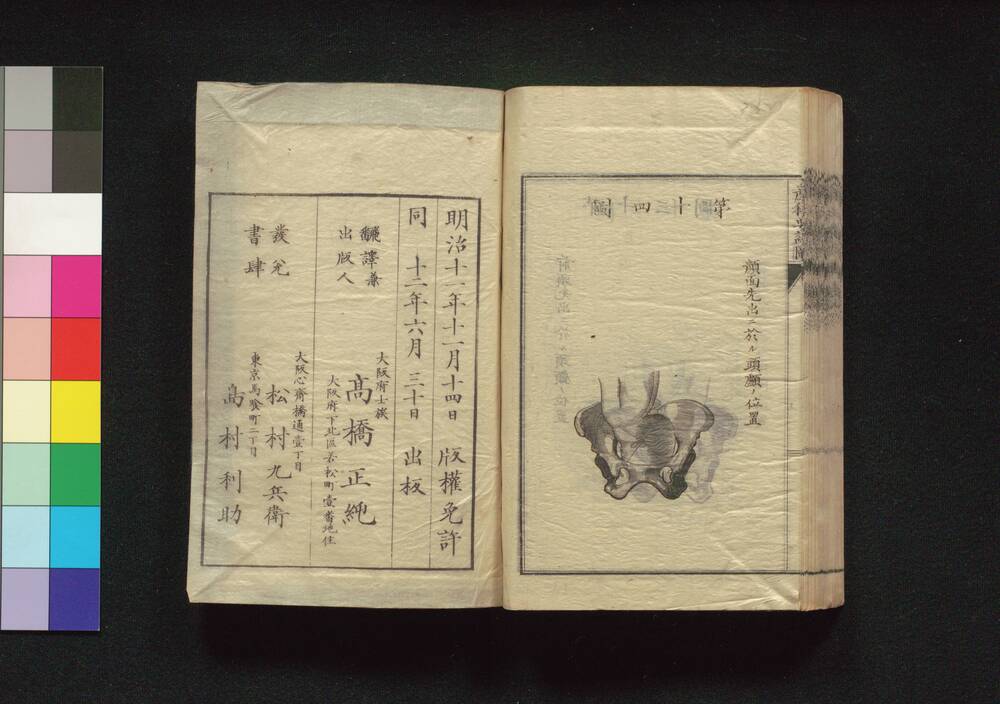 第十四圖
顔面先出ニ於ル頭顱ノ位置
明治十一年十一月十四日 版權免許
同 十二年六月三十日 出板
飜譯兼
出版人
大阪府士族
高橋正純
大阪府下北區若松町壹番地住
發兌
書肆
大阪心齋橋通壹丁目
松村九兵衛
東京馬喰町二丁目
島村利助